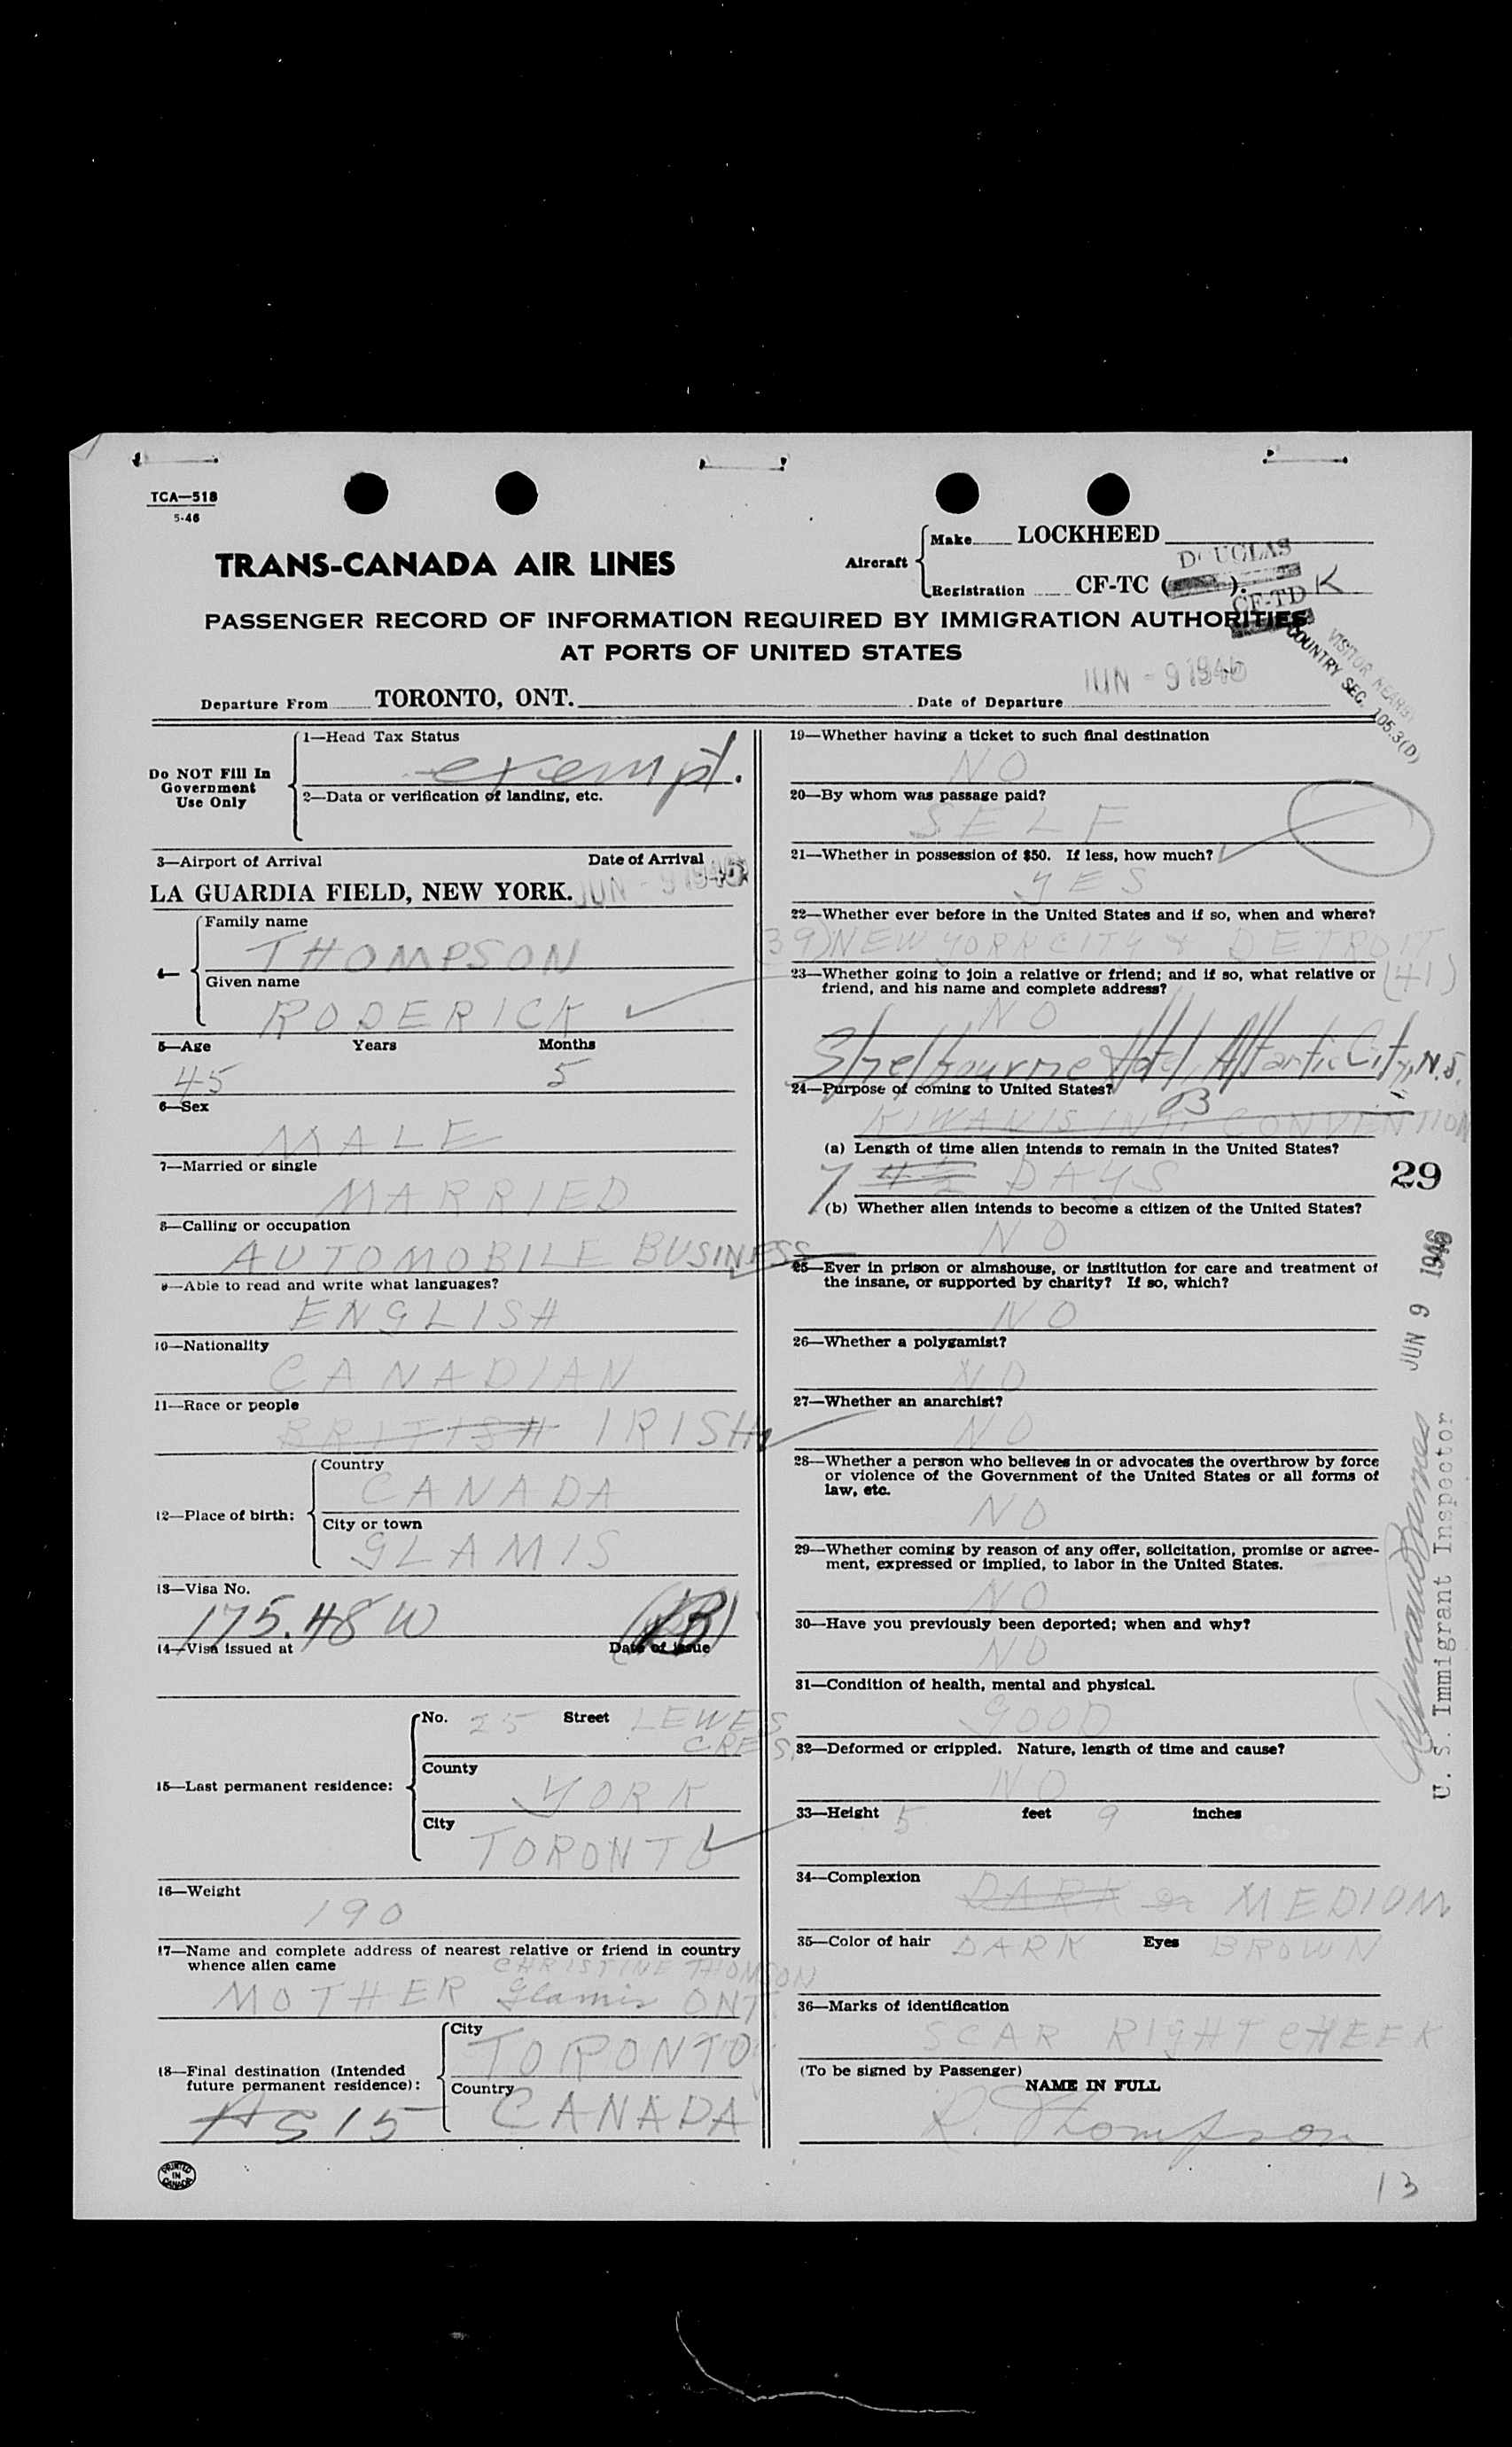 TCA—518
5-46
TRANS-CANADA AIR LINES
Aircraft
Make LOCKHEED
DOUGLAS
Registration CF-TC ( ).
CF-TD K
PASSENGER RECORD OF INFORMATION REQUIRED BY IMMIGRATION AUTHORITIES
AT PORTS OF UNITED STATES
VISITOR NEARBY
COUNTRY SEC. 105.3(D)
Departure From TORONTO, ONT. Date of Departure JUN - 9 1946
Do NOT Fill In
Government
Use Only
1—Head Tax Status
exempt.
2—Data or verification of landing, etc.
3—Airport of Arrival Date of Arrival
LA GUARDIA FIELD, NEW YORK. JUN - 9 1946
4—
Family name
THOMPSON
Given name
RODERICK
5—Age Years Months
45 5
6—Sex
MALE
7—Married or single
MARRIED
8—Calling or occupation
AUTOMOBILE BUSINESS
9—Able to read and write what languages?
ENGLISH
10—Nationality
CANADIAN
11—Race or people
BRITISH IRISH
12—Place of birth:
Country
CANADA
City or town
GLAMIS
13—Visa No.
175.48 W
14—Visa issued at Date of issue
15—Last permanent residence:
No. 25 Street LEWES
CRES.
County
YORK
City
TORONTO
16—Weight
190
17—Name and complete address of nearest relative or friend in country
whence alien came
CHRISTINE THOMSON
MOTHER Glamis ONT.
18—Final destination (Intended
future permanent residence):
City
TORONTO
Country
CANADA
PRINTED
IN
CANADA
19—Whether having a ticket to such final destination
NO
20—By whom was passage paid?
SELF
21—Whether in possession of $50. If less, how much?
YES
22—Whether ever before in the United States and if so, when and where?
(39) NEW YORK CITY & DETROIT
(41)
23—Whether going to join a relative or friend; and if so, what relative or
friend, and his name and complete address?
NO
Shelbourne Hotel, Atlantic City, N.J.
24—Purpose of coming to United States?
B
KIWANIS INT. CONVENTION
(a) Length of time alien intends to remain in the United States?
7 4½ DAYS
29
(b) Whether alien intends to become a citizen of the United States?
NO
25—Ever in prison or almshouse, or institution for care and treatment of
the insane, or supported by charity? If so, which?
NO
26—Whether a polygamist?
NO
27—Whether an anarchist?
NO
28—Whether a person who believes in or advocates the overthrow by force
or violence of the Government of the United States or all forms of
law, etc.
NO
29—Whether coming by reason of any offer, solicitation, promise or agree-
ment, expressed or implied, to labor in the United States.
NO
30—Have you previously been deported; when and why?
NO
31—Condition of health, mental and physical.
GOOD
32—Deformed or crippled. Nature, length of time and cause?
NO
33—Height 5 feet 9 inches
34—Complexion
DARK or MEDIUM
35—Color of hair DARK Eyes BROWN
36—Marks of identification
SCAR RIGHT CHEEK
(To be signed by Passenger)
NAME IN FULL
R. Thompson
13
JUN 9 1946
U. S. Immigrant Inspector